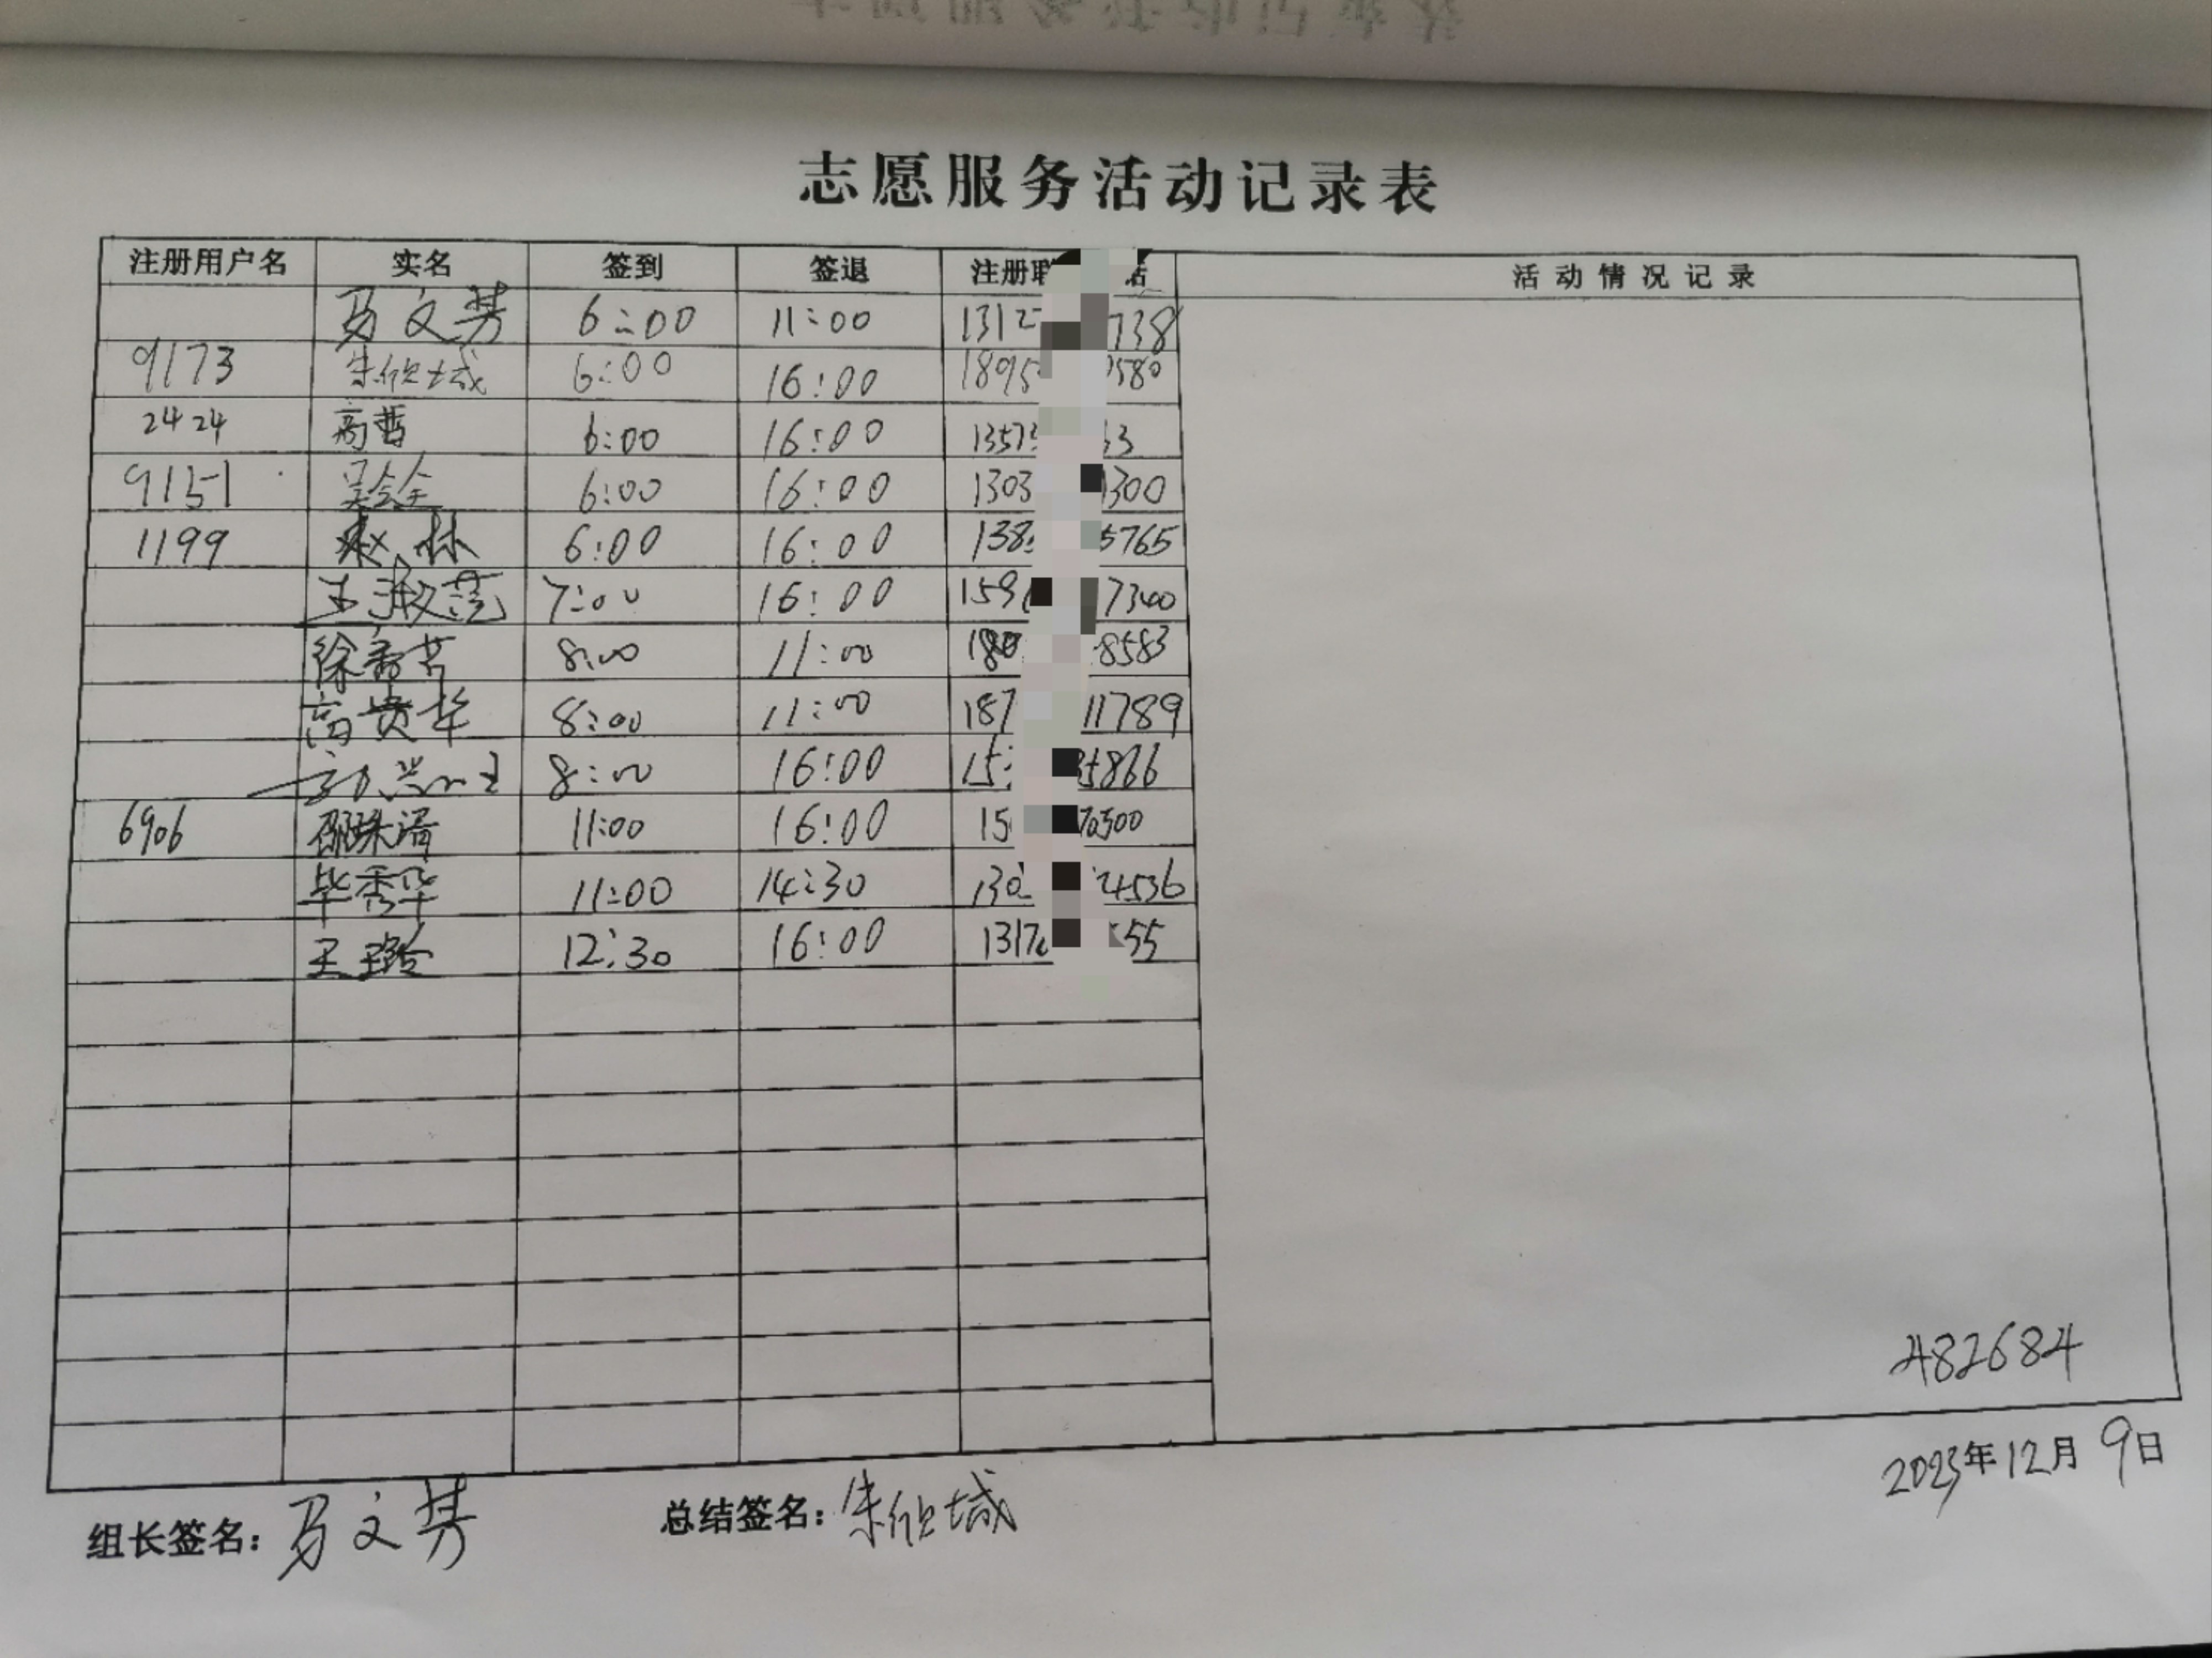 志愿服务活动记录表
注册用户名 实名 签到 签退 注册联 话 活动情况记录
6:00 11:00 1312 738
9173 朱欣城 6:00 16:00 1895 580
2424 高哲 6:00 16:00 1357 3
9151 吴会全 6:00 16:00 1303 1300
1199 赵林 6:00 16:00 138 5765
7:00 16:00 159 7340
徐 芳 8:00 11:00 180 8583
高贵华 8:00 11:00 187 11789
8:00 16:00 15 5866
6906 邵珠涛 11:00 16:00 15 70500
毕秀华 11:00 14:30 130 24536
王玲 12:30 16:00 1317 55
482684
2023年12月9日
组长签名: 总结签名:朱欣城